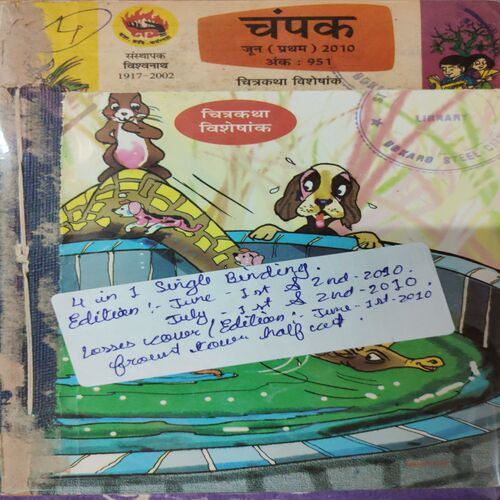 4
चंपक
जून ( प्रथम ) 2010
अंक : 951
चित्रकथा विशेषांक
संस्थापक
विश्वनाथ
1917-2002
चित्रकथा
विशेषांक
LIBRARY
BOKARO STEEL
4 in 1 Single Binding.
Edition :- June - 1st & 2nd - 2010.
July - 1st & 2nd - 2010.
Losses cover / Edition :- June - 1st - 2010
front cover half cut.